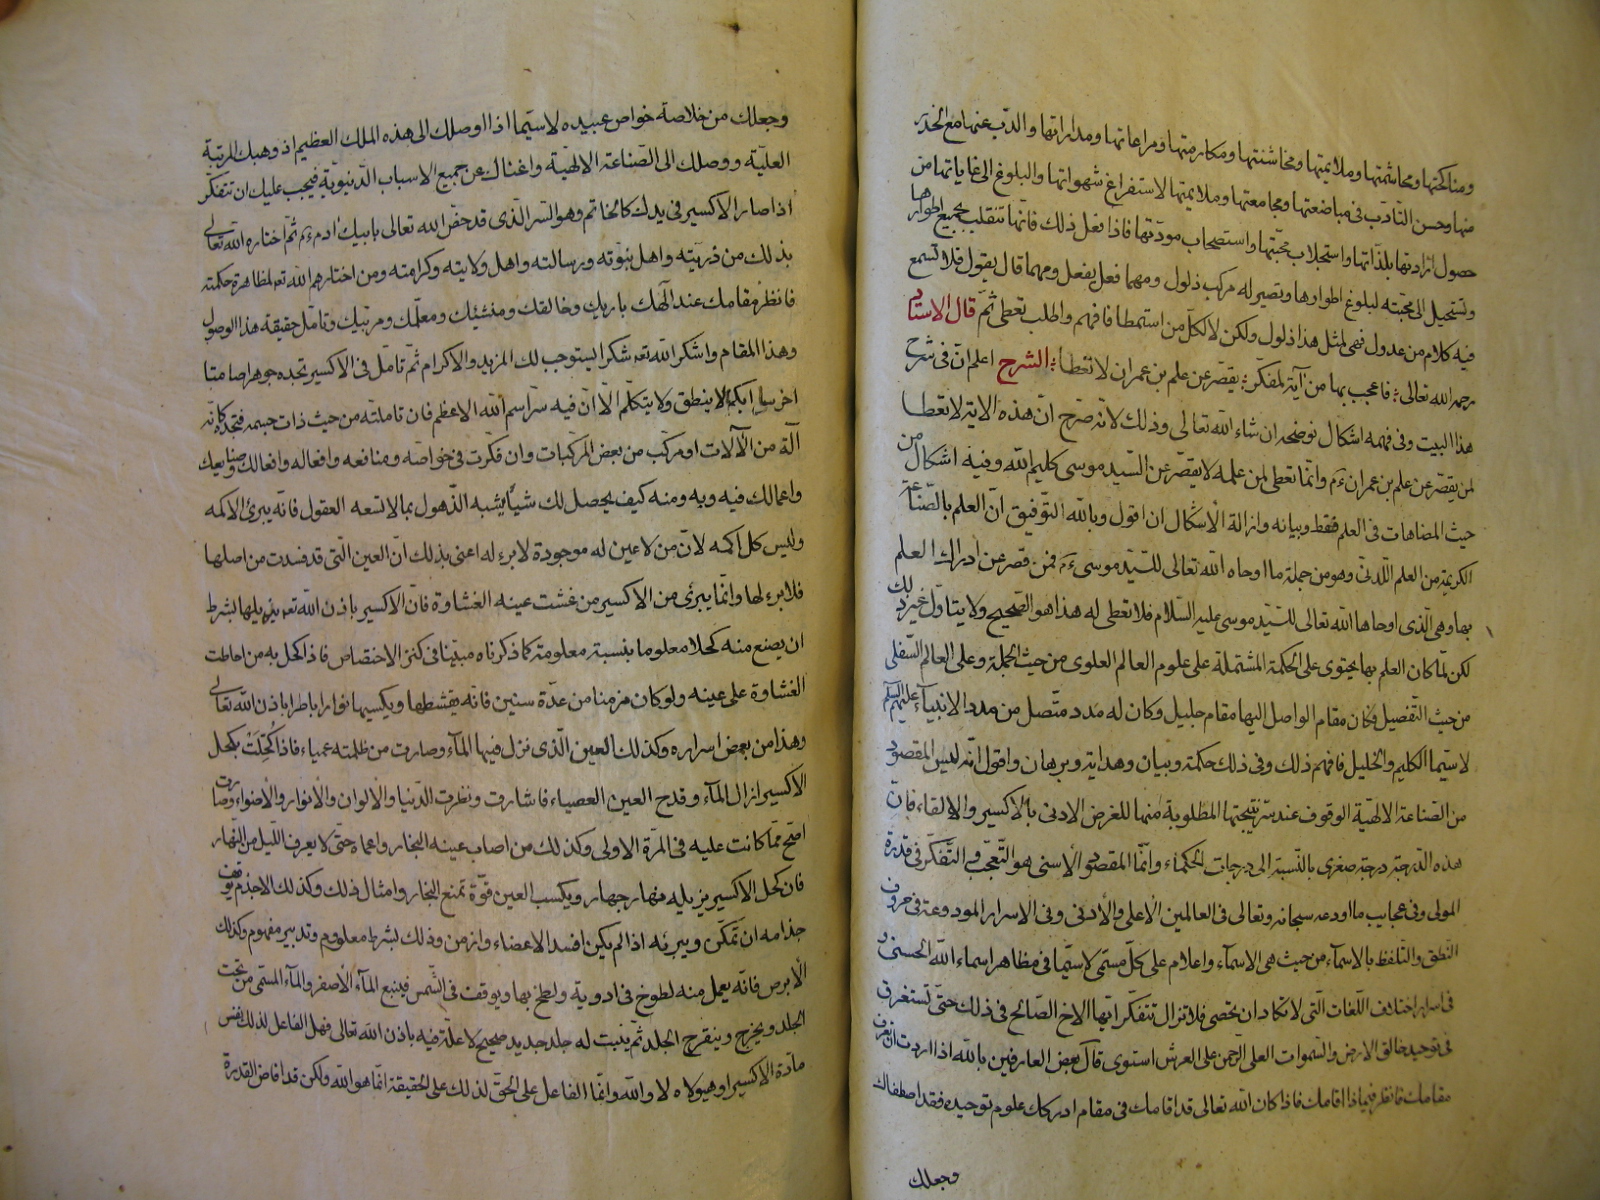 ومناكحتها ومحاشمتها وملايمتها ومخاشنتها ومكارمتها ومراعاتها ومداراتها والدب عنها مع الحذر
منها وحسن التادب فى مباضعتها ومجامعتها وملايمتها لاستفراغ شهواتها والبلوغ الى غاياتها من
حصول ارادتها بلذاتها واستجلاب محبتها واستصحاب مودتها فاذا فعل ذلك فانها تنقلب بجميع اطوارها
وتستحيل الى محبته لبلوغ اطوارها ويصير له مركب ذلول ومهما فعل يفعل ومهما قال يقول فلا تسمع
فيه كلام من عدول فهى لمثل هذا ذلول ولكن لا لكل من استمطا فافهم واطلب تعطى ثم قال الاستاد
رحمه الله تعالى فاعجب بها من آية لمفكر يقصر عن علم بن عمران لا تعطا الشرح اعلم ان فى شرح
هذا البيت وفى فهمه اشكال نوضحه ان شاء الله تعالى وذلك لانه صرح ان هذه الاية لا تعطا
لمن يقصر عن علم بن عمران ءم وانما تعطى لمن علمه لا يقصر عن السيد موسى كليم الله وفيه اشكال من
حيث المضاهات فى العلم فقط وبيانه وازالة الأشكال ان اقول وبالله التوفيق ان العلم بالصناعة
الكريمة من العلم اللدنى وهو من جملة ما اوحاه الله تعالى للسيد موسى ءم فمن قصر عن ادراك العلم
بها وهى الذى اوحاها الله تعالى للسيد موسى عليه السلام فلا تعطى له هذا هو الصحيح ولا يتاول غير ذلك
لكن لما كان العلم بها يحتوى على الحكمة المشتملة على علوم العالم العلوى من حيث الجملة وعلى العالم السفلى
من حيث التفصيل فكان مقام الواصل اليها مقام جليل وكان له مدد متصل من مدد الانبيآء عليهم السلم
لاسيما الكليم والخليل فافهم ذلك وفى ذلك حكمة وبيان وهداية وبرهان واقول انه ليس المقصود
من الصناعة الالهية الوقوف عند نتيجتها المطلوبة منها للغرض الادنى بالاكسير والالقاء فان
هذه الدرجة درجة صغرى بالنسبة الى درجات الحكمآء وانما المقصود الاسنى هو التعجب والتفكر فى قدرة
المولى وفى عجايب ما اودعه سبحانه وتعالى فى العالمين الاعلى والأدنى وفى الاسرار المودوعة فى حروف
النطق والتلفظ بالاسمآء من حيث هى الاسمآء واعلام على كل مسمى لاسيما فى مظاهر اسماء الله الحسنى و
فى اسرار اختلاف اللغات التى لا تكاد ان تحصى فلا تزال تتفكر ايها الاخ الصالح فى ذلك حتى تستغرق
فى توحيد خالق الارض والسموات العلى الرحمن على العرش استوى قال بعض العارفين بالله اذا اردت ان تعرف
مقامك فانظر فيماذا اقامك فاذا كان الله تعالى قد اقامك فى مقام ادرك علوم توحيده فقد اصطفاك
وجعلك
وجعلك من خلاصة خواص عبيده لاسيما اذا اوصلك الى هذه الملك العظيم اذ وهبك المرتبة
العلية ووصلك الى الصناعة الالهية واغناك عن جميع الاسباب الدنيوية فيجب عليك ان تتفكر
اذا صار الاكسير فى يدك كالخاتم وهو السر الذى قد خص الله تعالى بابيك ادم ءم ثم اختاره الله تعالى
بذلك من ذريته واهل نبوته ورسالته واهل ولايته وكرامته ومن اختارهم الله تعه لمظاهرة حكمته
فانظر مقامك عند الهك باريك وخالقك ومنشئك ومعلمك ومربيك وتامل حقيقة هذا الوصول
وهذا المقام واشكر الله تعه شكرا يستوجب لك المزيد والاكرام ثم تامل فى الاكسير تجده جوهرا صامتا
اخرسا ابكما لا ينطق ولا يتكلم الا ان فيه سر اسم الله الاعظم فان تاملته من حيث ذات جسمه فتجد كانه
آلة من الآلات او مركب من بعض المركبات وان فكرت فى خواصه ومنافعه وافعاله وافعالك وصنايعك
واعمالك فيه وبه ومنه كيف يحصل لك شيأ يشبه الذهول بما لا تسعه العقول فانه يبرئ الاكمه
وليس كل اكمه لان من لا عين له موجودة لا برء له اعنى بذلك ان العين التى قد فسدت من اصلها
فلا برء لها وانما يبرئ من الاكسير من غشت عينه الغشاوة فان الاكسير باذن الله تعه يزيلها بشرط
ان يصنع منه كحلا معلوما بنسبة معلومة كما ذكرناه مبينا فى كنز الاختصاص فاذا كحل به من احاطت
الغشاوة على عينه ولو كان مزمنا من عدة سنين فانه يقشطها ويكسيها نورا باطرا باذن الله تعالى
وهذا من بعض اسراره وكذلك العين الذى نزل فيها المآء وصارت من ظلمته عمياء فاذا كحلت بكحل
الاكسير ازال المآء وقدح العين العصياء فاشارت ونظرت الدنيا والالوان والأنوار والأضواء وصارت
اصح مما كانت عليه فى المرة الاولى وكذلك من اصاب عينه البخار واعماه حتى لا يعرف الليل من النهار
فان كحل الاكسير يزيله منها جهار ويكسب العين قوة تمنع البخار وامثال ذلك وكذلك الاجذم يوقف
جذامه ان تمكن ويبرئه اذا لم يكن افسد الاعضاء وازمن وذلك بشرط معلوم وتدبير مفهوم وكذلك
الأبرص فانه يعمل منه لطوخ فى ادوية ويلطخ بها ويوقف فى الشمس فينبع المآء الأصفر والمآء المسمى من تحت
الجلد ويخرج وينقرح الجلد ثم ينبت له جلد جديد صحيح لا علة فيه باذن الله تعالى فهل الفاعل لذلك نفس
مادة الاكسير او هيولاه لا والله وانما الفاعل على الحق لذلك على الحقيقة انما هو الله ولكن قد افاض القدرة